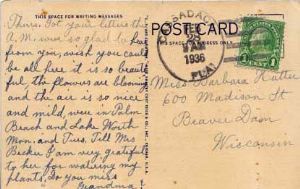 THIS SPACE FOR WRITING MESSAGES
POST CARD
THIS SPACE FOR ADDRESS ONLY
Thurs. Got your letter this
A.M. was so glad to hear
from you, wish you could
be all here it is so beautiful
the flowers are blooming
and the air is so nice
and mild, were in Palm
Beach and Lake Worth
Mon. and Tues. Tell Mrs
Becker I am very grateful
to her for watering my
plants, Do you miss
Grandma
FEB
9 AM
1936
FLA.
1
Miss Barbara
600 Madison St
Beaver Dam
Wisconsin